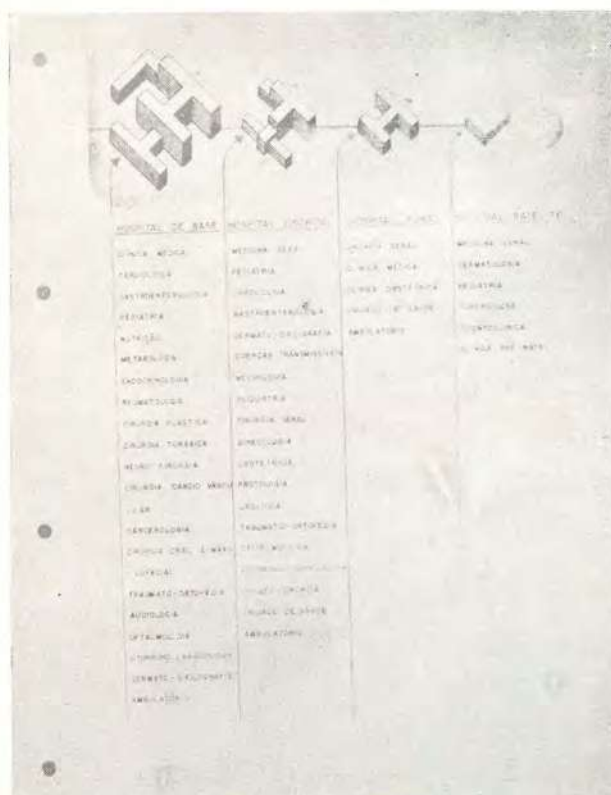 HOSPITAL DE BASE
CLINICA MEDICA
CARDIOLOGIA
GASTROENTEROLOGIA
PEDIATRIA
NUTRIÇÃO
METABOLOGIA
ENDOCRINOLOGIA
REUMATOLOGIA
CIRURGIA PLASTICA
CIRURGIA TORAXICA
NEURO CIRURGIA
CIRURGIA CARDIO VASCU
LAR
CANCEROLOGIA
CIRURGIA ORAL
TRAUMATO-ORTOPEDIA
AUDIOLOGIA
OFTALMOLOGIA
AMBULATORIO
HOSPITAL
MEDICINA GERAL
PEDIATRIA
CARDIOLOGIA
GASTROENTEROLOGIA
DERMATO-SIFILIGRAFIA
DOENÇAS TRANSMISSIVEIS
NEUROLOGIA
PSIQUIATRIA
CIRURGIA GERAL
GINECOLOGIA
OBSTETRICIA
PROTOLOGIA
UROLOGIA
TRAUMATO-ORTOPEDIA
UNIDADE DE SAUDE
AMBULATORIO
HOSPITAL RURAL
CIRURGIA GERAL
CLINICA MEDICA
CLINICA OBSTETRICA
UNIDADE DE SAUDE
AMBULATORIO
MEDICINA GERAL
DERMATOLOGIA
PEDIATRIA
TUBERCULOSE